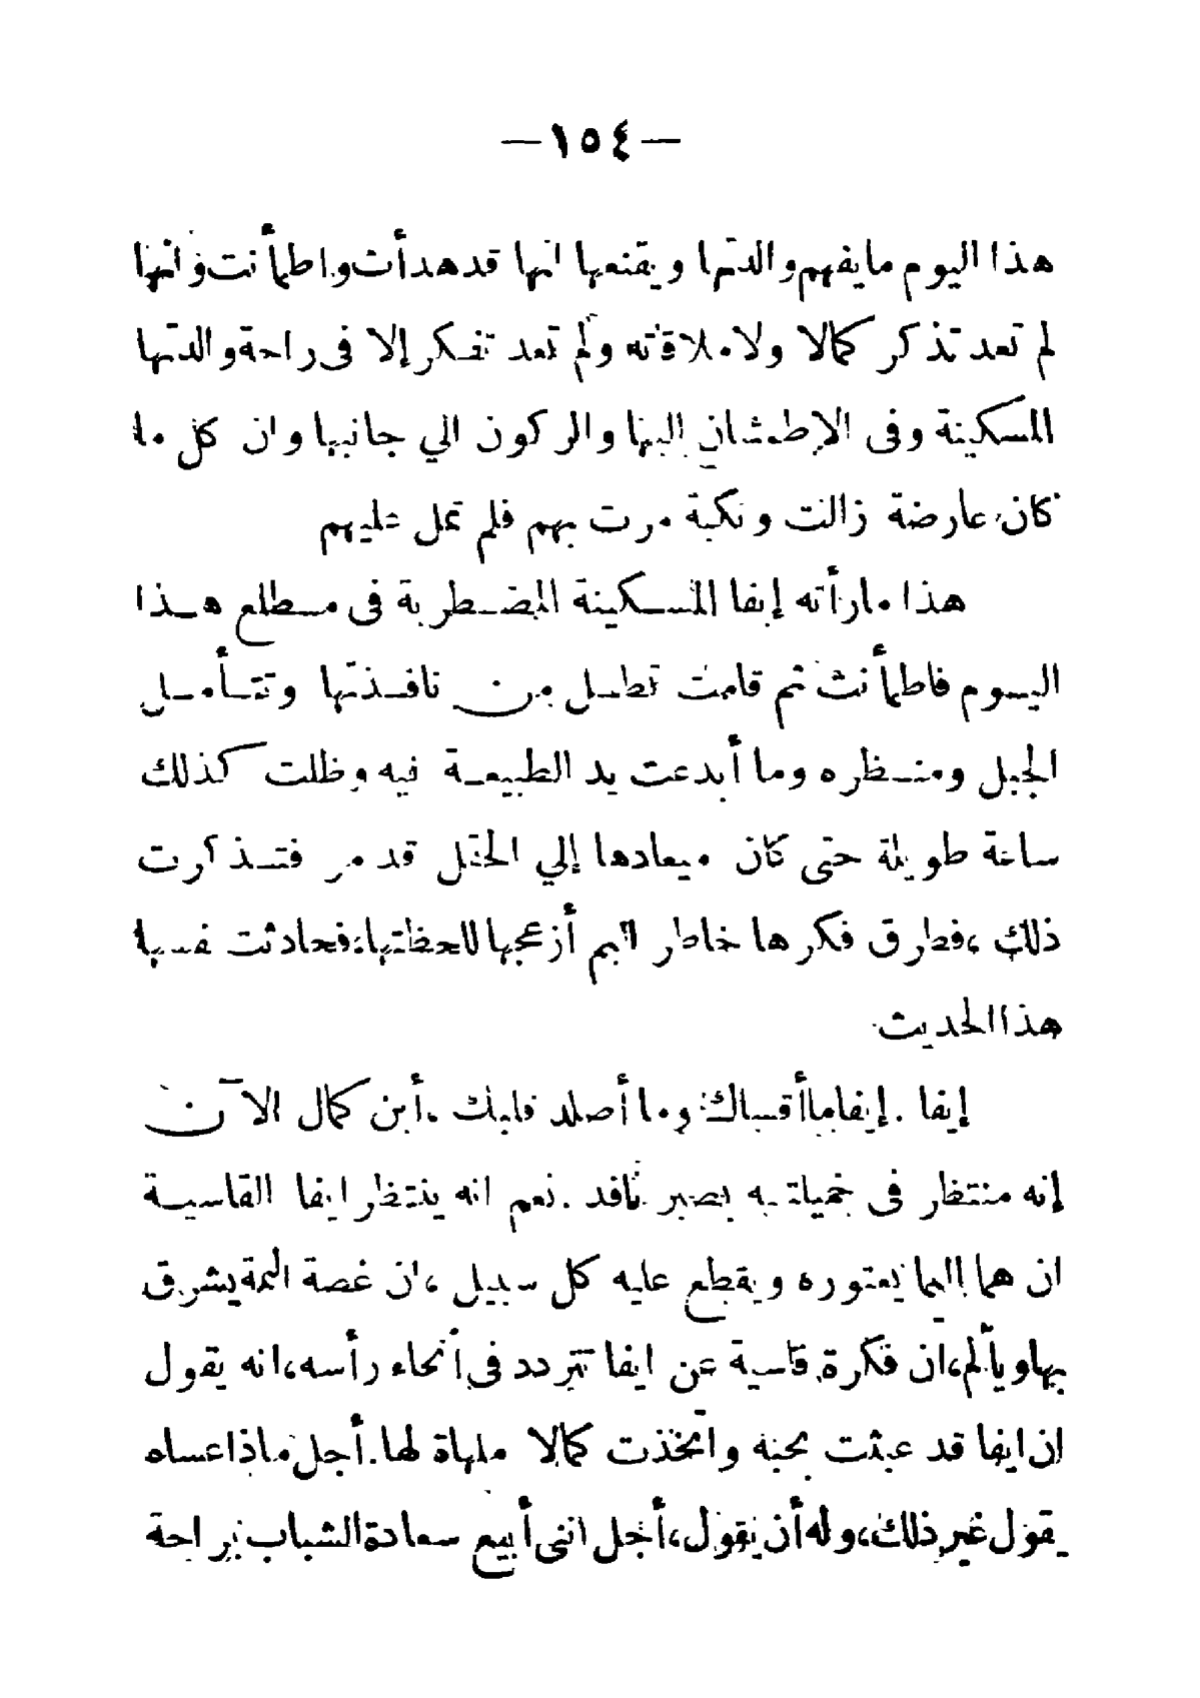 — ١٥٤ —
هذا اليوم ما يفهم والدتها ويقنعها انها قد هدأت واطمأنت وانها
لم تعد تذكر كمالا ولا ملاقاته ولم تعد تفكر إلا فى راحة والدتها
المسكينة وفى الإطمئنان إليها والركون الي جانبها وان كل ما
كان عارضة زالت ونكبة مرت بهم فلم تمل عليهم
هذا ما رأته إيفا المسكينة المضطربة فى مطلع هذا
اليوم فاطمأنت ثم قامت تطل من نافذتها وتتأمل
الجبل ومنظره وما أبدعت يد الطبيعة فيه وظلت كذلك
ساعة طويلة حتى كان ميعادها إلي الحقل قد مر فتذكرت
ذلك ، فطرق فكرها خاطر اليم أزعجها للحظتها، فحادثت نفسها
هذا الحديث
إيفا . إيفا ما أقساك وما أصلد قلبك . أين كمال الآن
إنه منتظر فى خميلته بصبر نافد . نعم انه ينتظر ايفا القاسية
ان هما اليما يعتوره ويقطع عليه كل سبيل ، ان غصة اليمة يشرق
بها ويألم، ان فكرة قاسية عن ايفا تتردد فى أنحاء رأسه، انه يقول
ان ايفا قد عبثت بحبه واتخذت كمالا ملهاة لها . أجل ماذا عساه
يقول غير ذلك، وله أن يقول، أجل اننى أبيع سعادة الشباب براحة